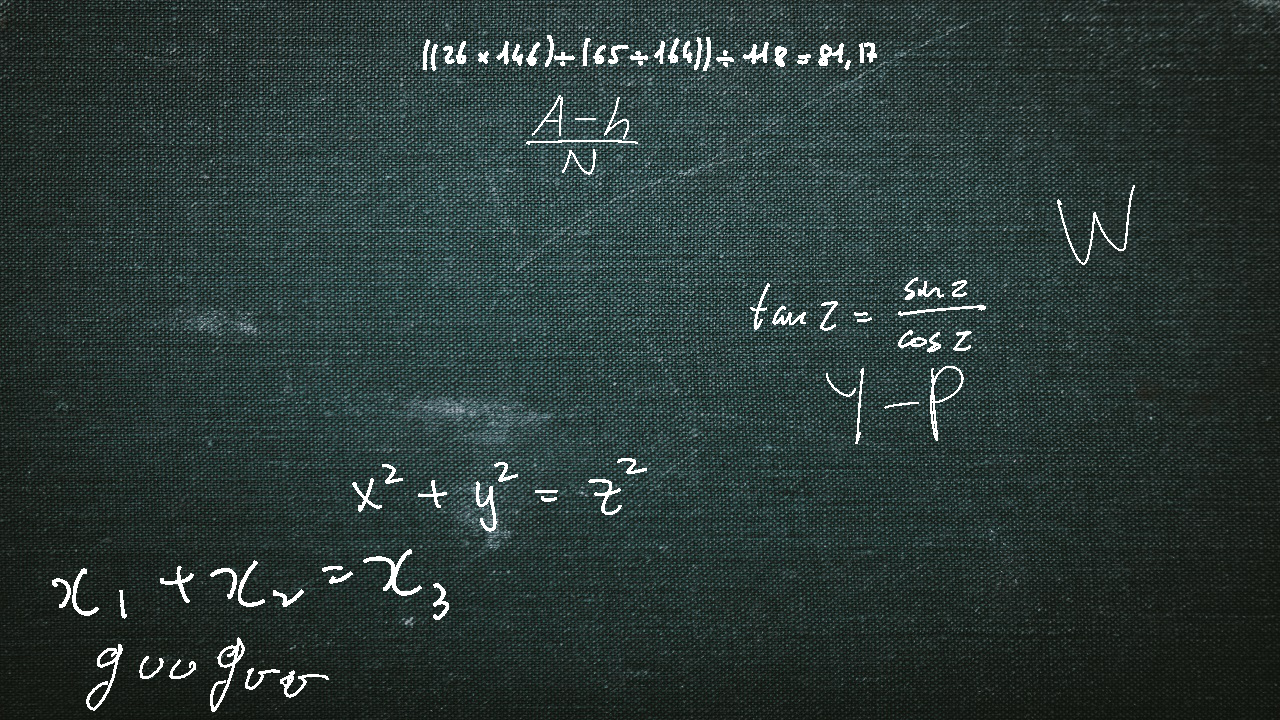 ((26 × 146) ÷ (65 ÷ 164)) ÷ 118 = 81,17
A - h
N
W
tan z = sin z
cos z
Y - P
x² + y² = z²
x₁ + x₂ = x₃